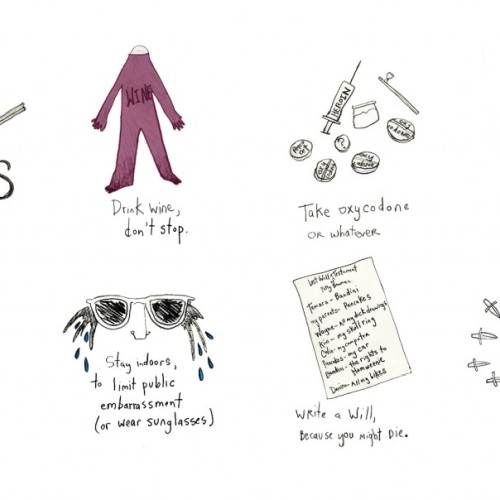 S
WINE
Drink wine,
don't stop.
HEROIN
Take oxycodone
or whatever
Stay indoors,
to limit public
embarrassment
(or wear sunglasses)
Last Will & Testament
Tamara - Bandini
my parents - Pancakes
Wayne - All my dick drawings
Kim - my skull ring
my computer
Pancakes - my car
Bandini - the rights to
Homweenie
All my bikes
Write a Will,
Because you might Die.